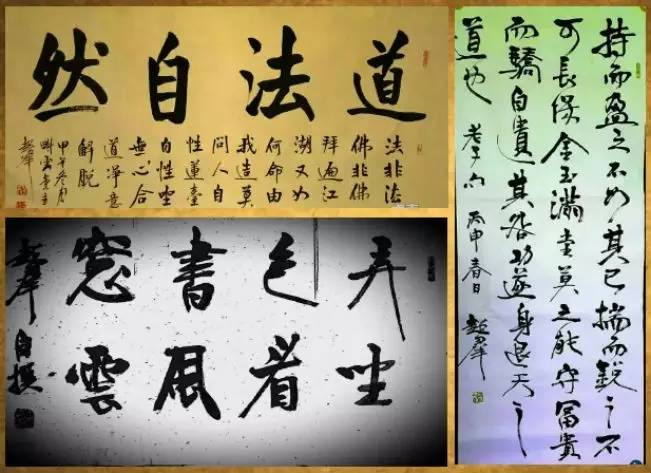 道法自然
法非法
佛非佛
拜遍江
湖又如
何命由
我造莫
問人自
性蓮臺
自性坐
無心合
道淨意
解脫
甲午冬月
弄色書窓
坐看風雲
自撰
持而盈之不如其已揣而銳之不
可長保金玉滿堂莫之能守富貴
而驕自遺其咎功遂身退天之
道也 老子句 丙申春日